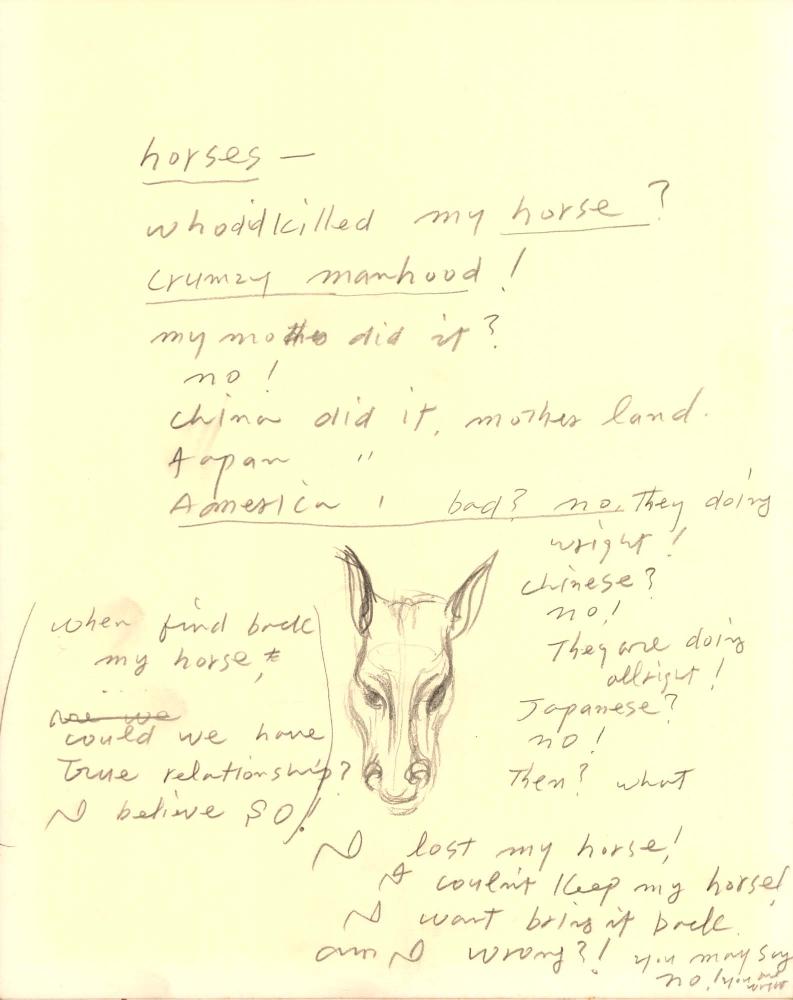 horses —
whodidkilled my horse?
crumzy manhood!
my mothe did it?
no!
china did it, mother land.
Japan "
America ' bad? no. They doing
wright!
chinese?
no!
They are doing
allright!
Japanese?
no!
Then? what
(when find back
my horse,
could we have
True relationship?
I believe SO!)
I lost my horse!
I couldn't Keep my horse!
I want bring it back.
am I wrong?! you may say
no! you are